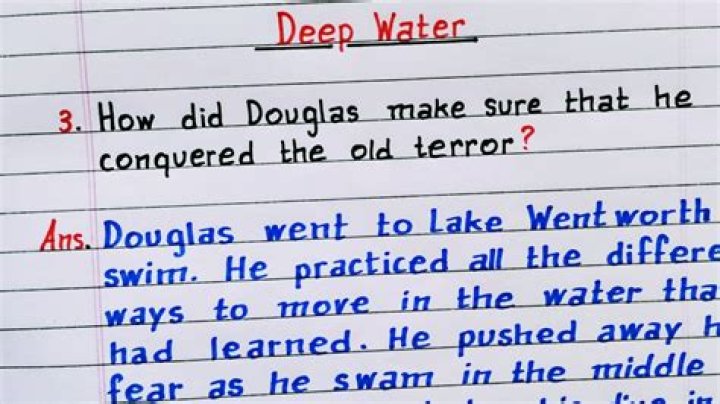 Deep Water
3. How did Douglas make sure that he
conquered the old terror?
Ans. Douglas went to Lake Wentworth
swim. He practiced all the differe
ways to move in the water tha
had learned. He pushed away h
fear as he swam in the middle